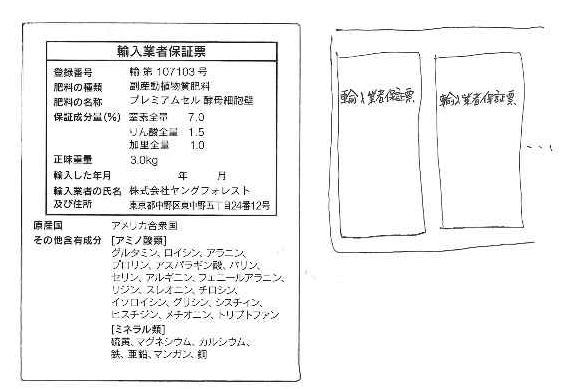 輸入業者保証票
登録番号 輸 第 107103 号
肥料の種類 副産動植物質肥料
肥料の名称 プレミアムセル 酵母細胞壁
保証成分量(%) 窒素全量 7.0
りん酸全量 1.5
加里全量 1.0
正味重量 3.0kg
輸入した年月 年 月
輸入業者の氏名 株式会社ヤングフォレスト
及び住所 東京都中野区東中野五丁目24番12号
原産国 アメリカ合衆国
その他含有成分 [アミノ酸類]
グルタミン、ロイシン、アラニン、
プロリン、アスパラギン酸、バリン、
セリン、アルギニン、フェニールアラニン、
リジン、スレオニン、チロシン、
イソロイシン、グリシン、シスチィン、
ヒスチジン、メチオニン、トリプトファン
[ミネラル類]
硫黄、マグネシウム、カルシウム、
鉄、亜鉛、マンガン、銅
輸入業者保証票
輸入業者保証票
...